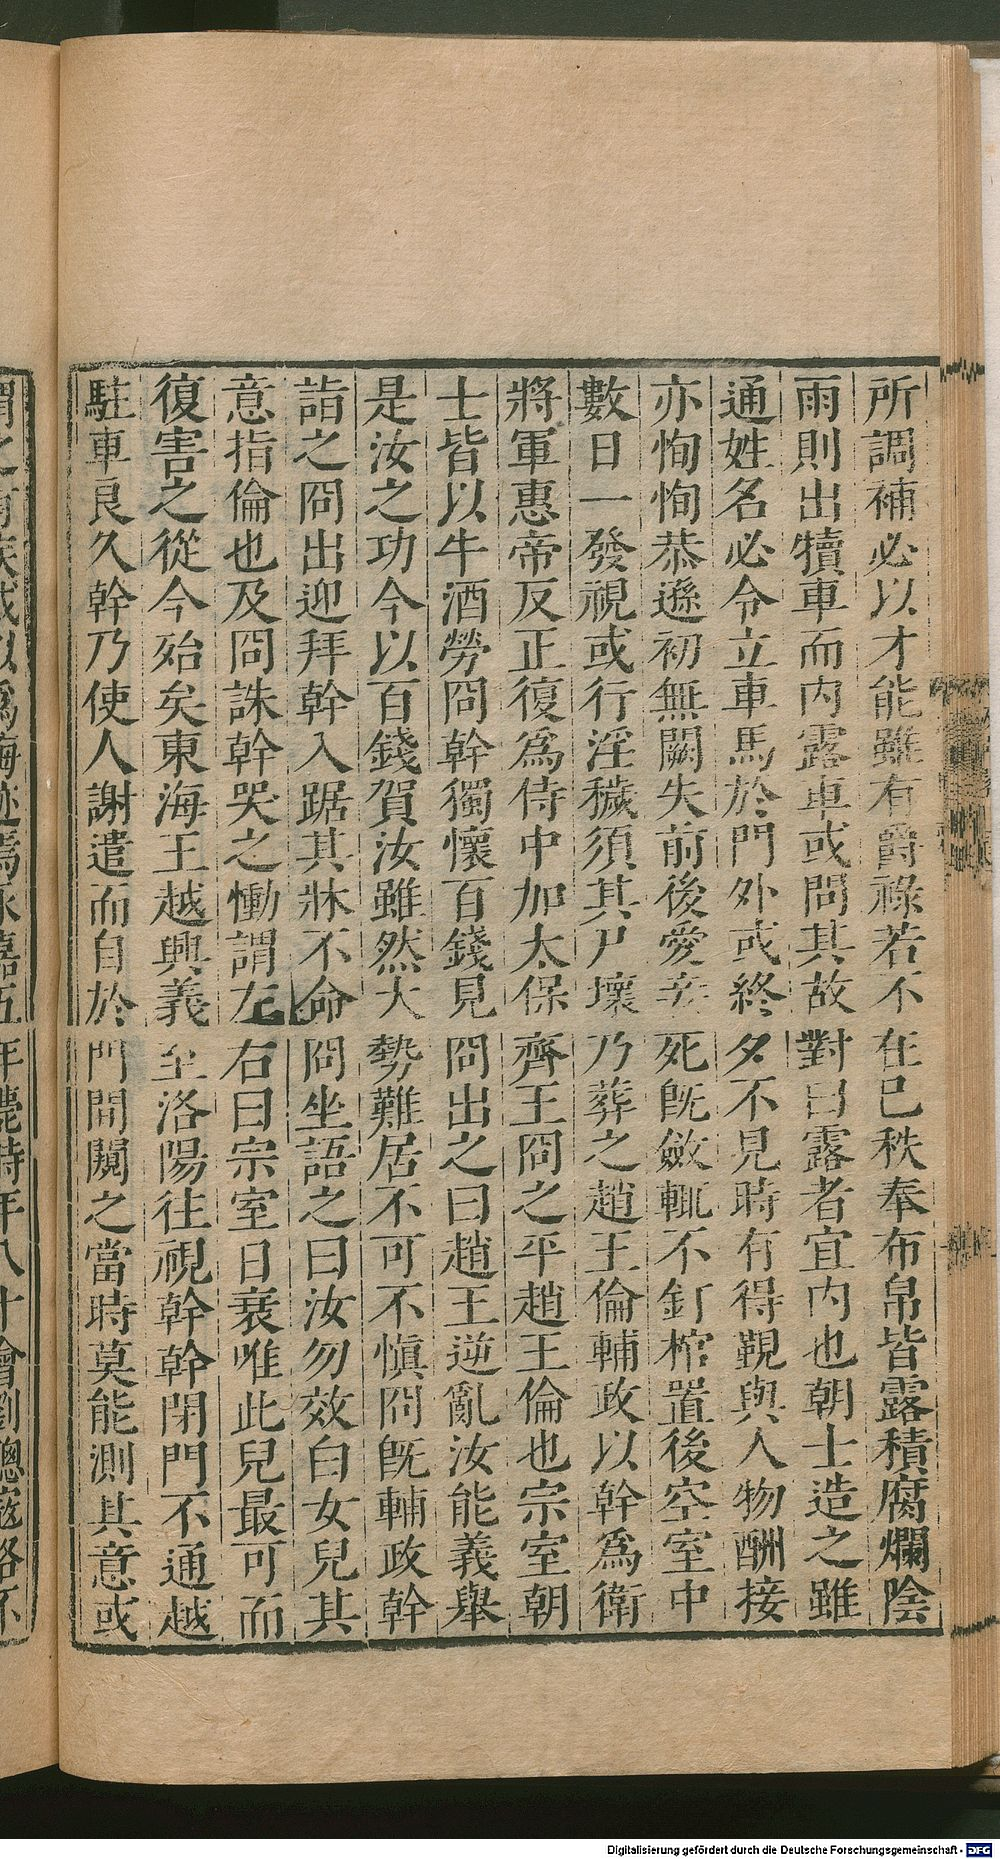 所調補必以才能雖有爵祿若不在已秩奉布帛皆露積腐爛陰
雨則出犢車而内露車或問其故對曰露者宜内也朝士造之雖
通姓名必令立車馬於門外或終夕不見時有得覲與人物酬接
亦恂恂恭遜初無闕失前後愛妾死既斂輒不釘棺置後空室中
數日一發視或行淫穢須其尸壞乃葬之趙王倫輔政以幹爲衛
將軍惠帝反正復爲侍中加太保齊王冏之平趙王倫也宗室朝
士皆以牛酒勞冏幹獨懷百錢見冏出之曰趙王逆亂汝能義舉
是汝之功今以百錢賀汝雖然大勢難居不可不愼冏既輔政幹
詣之冏出迎拜幹入踞其牀不命冏坐語之曰汝勿效白女兒其
意指倫也及冏誅幹哭之慟謂左右曰宗室日衰唯此兒最可而
復害之從今殆矣東海王越興義至洛陽往視幹幹閉門不通越
駐車良久幹乃使人謝遣而自於門間闚之當時莫能測其意或
謂之有疾或以爲晦迹焉永嘉五年薨時年八十會劉聰寇洛不
Digitalisierung gefördert durch die Deutsche Forschungsgemeinschaft - DFG